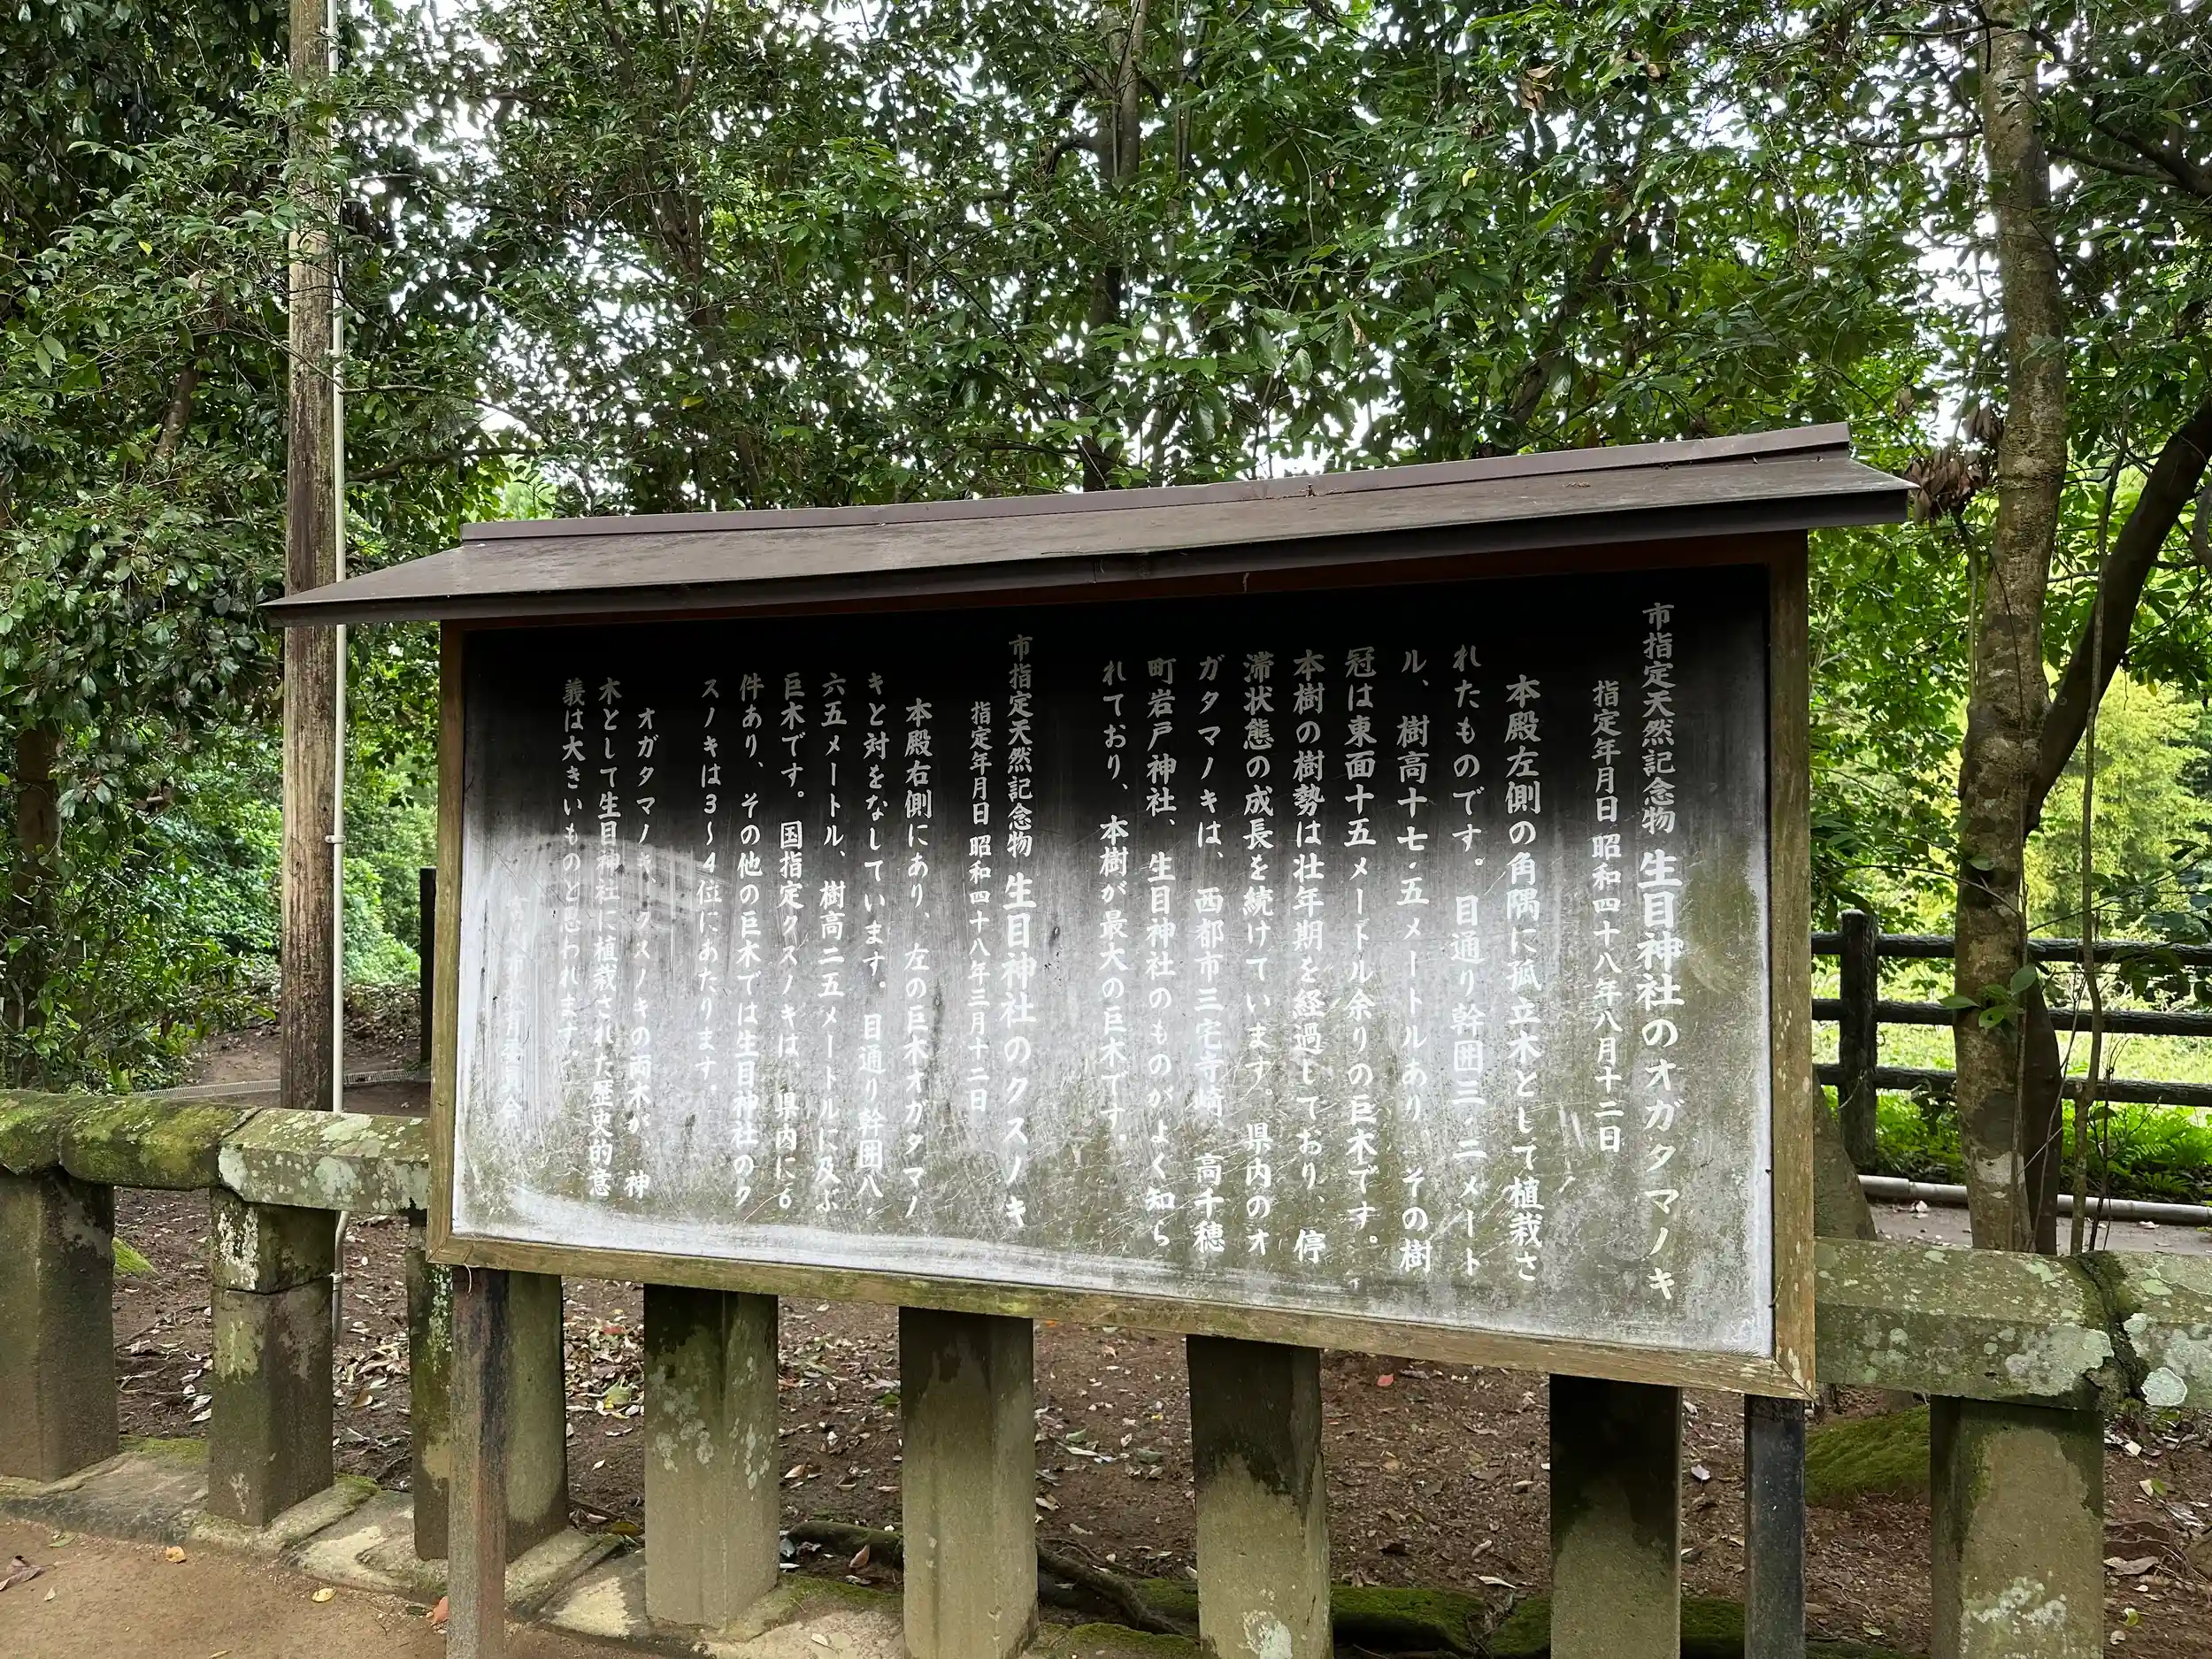 市指定天然記念物 生目神社のオガタマノキ
指定年月日 昭和四十八年八月十二日
本殿左側の角隅に孤立木として植栽さ
れたものです。目通り幹囲三・二メート
ル、樹高十七・五メートルあり、その樹
冠は東面十五メートル余りの巨木です。
本樹の樹勢は壮年期を経過しており、停
滞状態の成長を続けています。県内のオ
ガタマノキは、西都市三宅寺崎、高千穂
町岩戸神社、生目神社のものがよく知ら
れており、本樹が最大の巨木です。
市指定天然記念物 生目神社のクスノキ
指定年月日 昭和四十八年三月十二日
本殿右側にあり、左の巨木オガタマノ
キと対をなしています。目通り幹囲八・
六五メートル、樹高二五メートルに及ぶ
巨木です。国指定クスノキは、県内に6
件あり、その他の巨木では生目神社のク
スノキは3〜4位にあたります。
オガタマノキ、クスノキの両木が、神
木として生目神社に植栽された歴史的意
義は大きいものと思われます。
市教育委員会